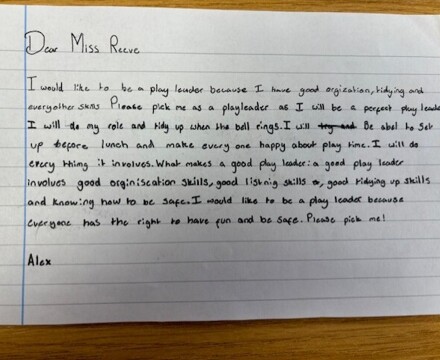 Dear Miss Reeve
I would like to be a play leader because I have good orgization, tidying and
everyother skills Please pick me as a playleader as I will be a perfect play leade
I will do my role and tidy up when the bell rings. I will try and Be abel to set
up before lunch and make every one happy about play time. I will do
every thing it involves. What makes a good play leader: a good play leader
involves good orginisation skills, good listnig skills, good tidying up skills
and knowing how to be safe. I would like to be a play leader because
everyone has the right to have fun and be safe. Please pick me!
Alex